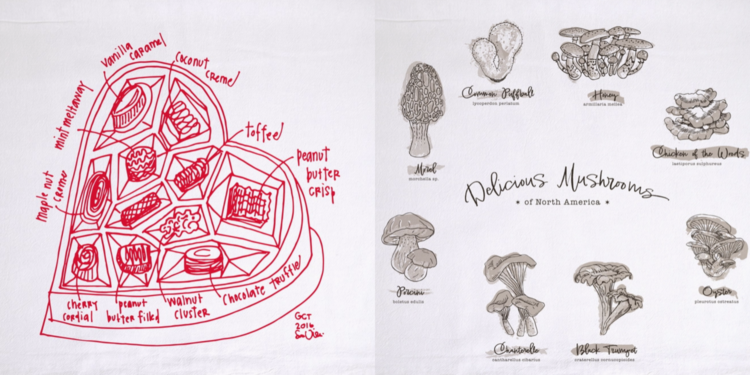 vanilla
caramel
coconut
creme
mint meltaway
toffee
peanut
butter
crisp
maple nut
creme
cherry
cordial
peanut
butter filled
walnut
cluster
chocolate truffle
GCT
2014
Common Puffball
lycoperdon perlatum
Honey
armillaria mellea
Morel
morchella sp.
Chicken of the Woods
laetiporus sulphureus
Delicious Mushrooms
* of North America *
Porcini
boletus edulis
Oyster
pleurotus ostreatus
Chanterelle
cantharellus cibarius
Black Trumpet
craterellus cornucopioides